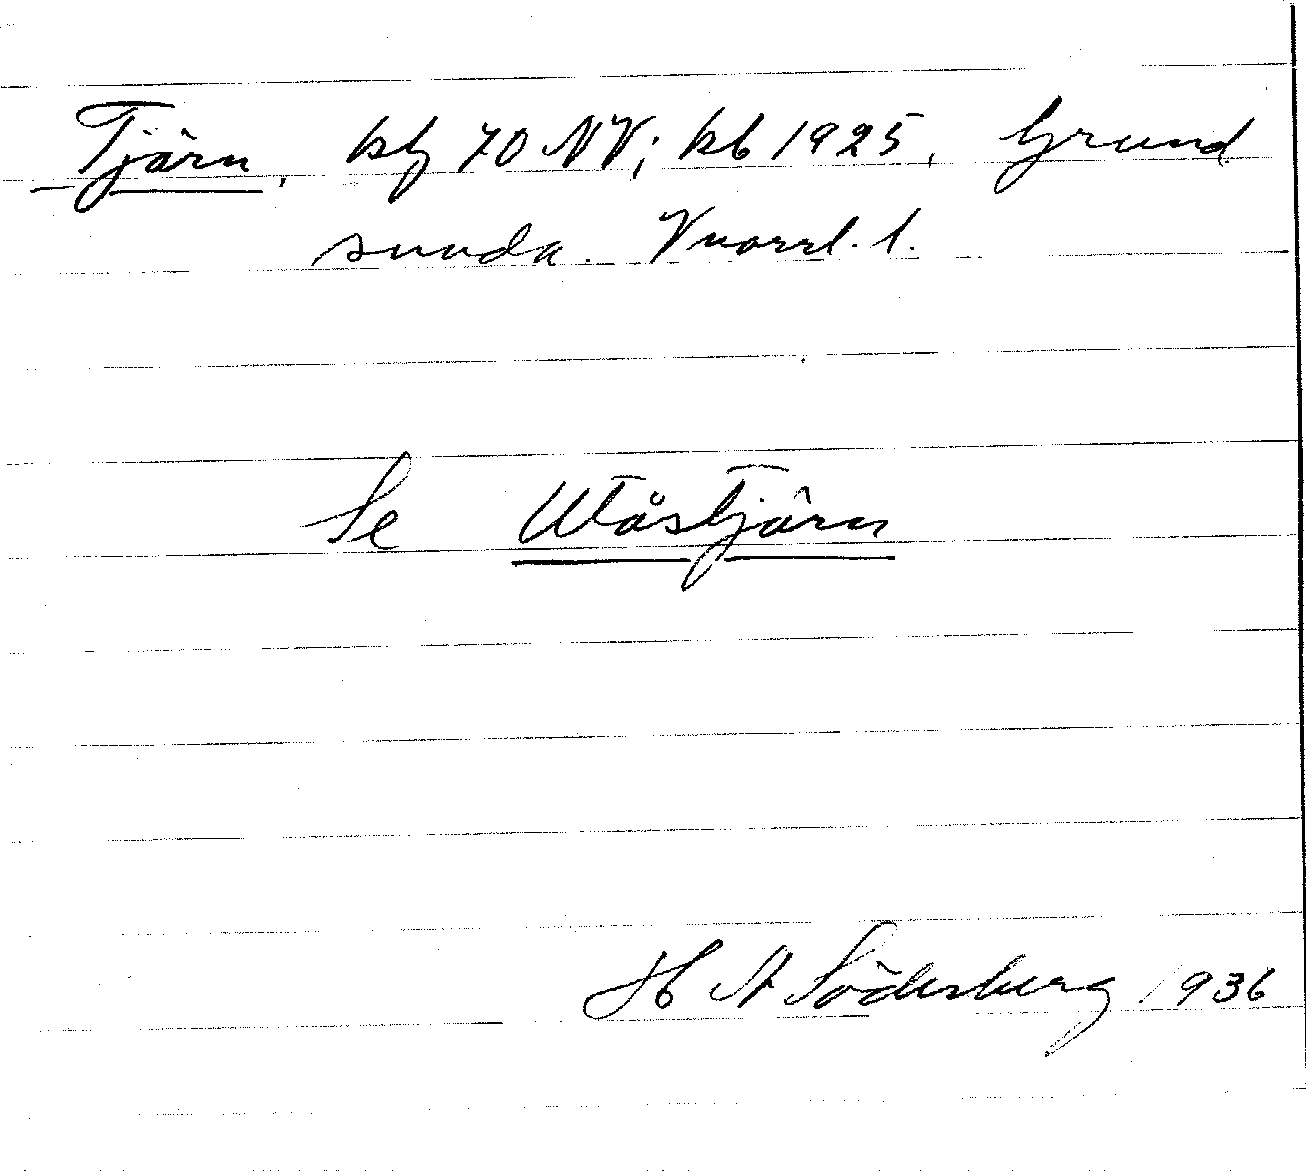 Tjärn, kbl 70 NV; kb 1925, Grund
sunda. Vnorrl. l.
Se Utåstjärn
H A Söderberg 1936